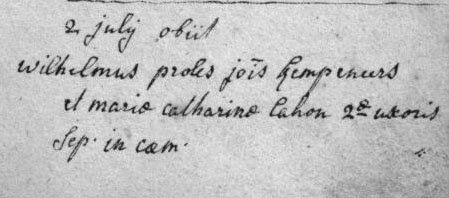 2 julij obiit
wilhelmus proles joĩs Kempeneers
et mariæ catharinæ Cahon 2æ uxoris
Sep. in cæm.